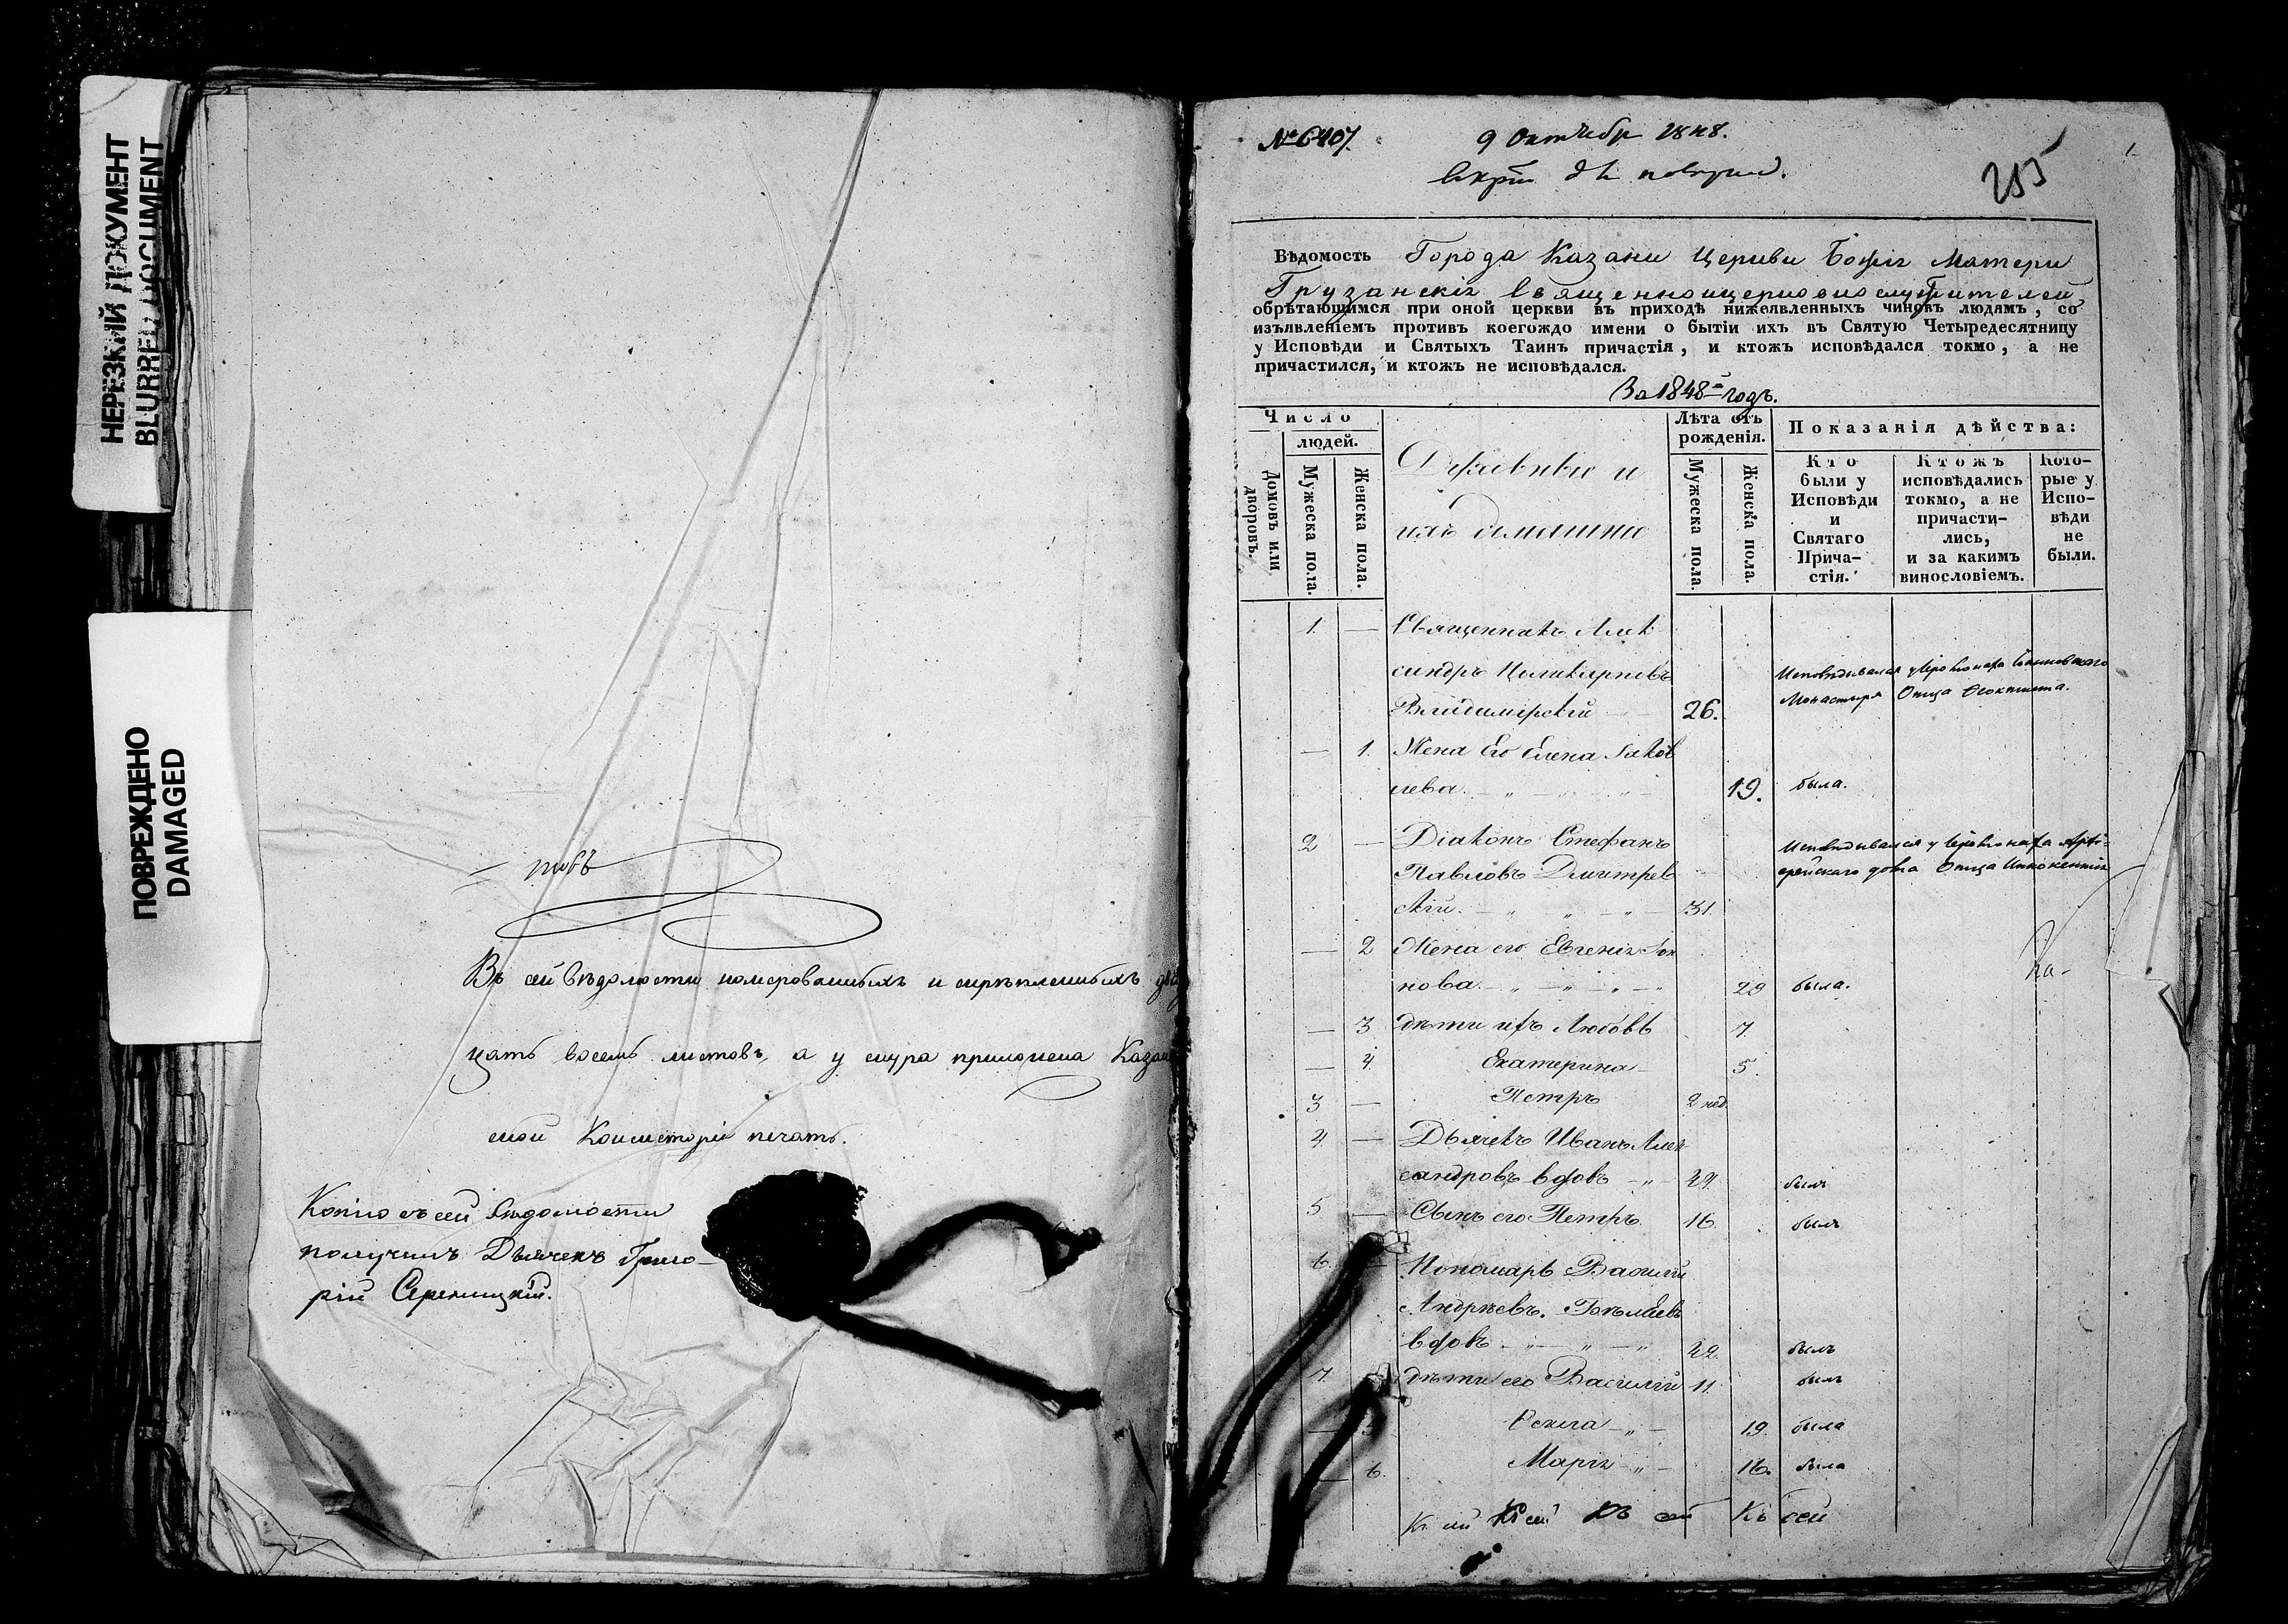 НЕРЕЗКИЙ ДОКУМЕНТ
BLURRED DOCUMENT
ПОВРЕЖДЕНО
DAMAGED
Въ сей вѣдомости номерованныхъ и скрѣпленныхъ два
цать восемь листовъ, а у снура приложена Казан
ской Консисторіи печать.
Копію съ сей вѣдомости
получилъ Дьячекъ Григо-
рій Сереницкій.
№ 6407.
9 Октября 1848.
255
1
Вѣдомость Города Казани Церкви Божіей Матери
Грузинскія священноцерковнослужителей
обрѣтающимся при оной церкви въ приходѣ нижеявленныхъ чиновъ людямъ, со
изъявленіемъ противъ коегождо имени о бытіи ихъ въ Святую Четыредесятницу
у Исповѣди и Святыхъ Таинъ причастія, и ктожъ исповѣдался токмо, а не
причастился, и ктожъ не исповѣдался.
За 1848 годъ.
Число
людей.
Домовъ или дворовъ.
Мужеска пола.
Женска пола.
Духовные и
ихъ домашніе
Лѣта отъ рожденія.
Мужеска пола.
Женска пола.
Показанія дѣйства:
Кто были у Исповѣди и Святаго Прича-стія.
Ктожъ исповѣдались токмо, а не причасти-лись, и за какимъ винословіемъ.
Кото-рые у Испо-вѣди не были.
1. — Священникъ Алек
сандръ Поликарповъ
Владимірскій — 26. Исповѣдывался у Іеромонаха
Монастыря Отца Ѳеоктиста.
— 1. Жена Его Елена Іаков
лева — 19. была.
2 — Діаконъ Стефанъ
Павловъ Дмитрев
скій. — 31. Исповѣдывался у Іеромонаха Архі-
ерейскаго дома Отца Иннокентія
— 2 Жена его Евгенія
нова — 29 была.
— 3 дѣти ихъ Любовь 7
— 4. Екатерина — 5.
3 — Петръ 2 нед.
4. — Дьячекъ Иванъ Алек
сандровъ вдовъ — былъ
5 — Сынъ его Петръ 16. былъ
6. — Пономарь Василій
Андрѣевъ.
вдовъ — былъ
7. дѣти его Василій 11. былъ
— 19. была
— 6. Марія — 16. была
Къ сей Къ сей Къ сей Къ сей